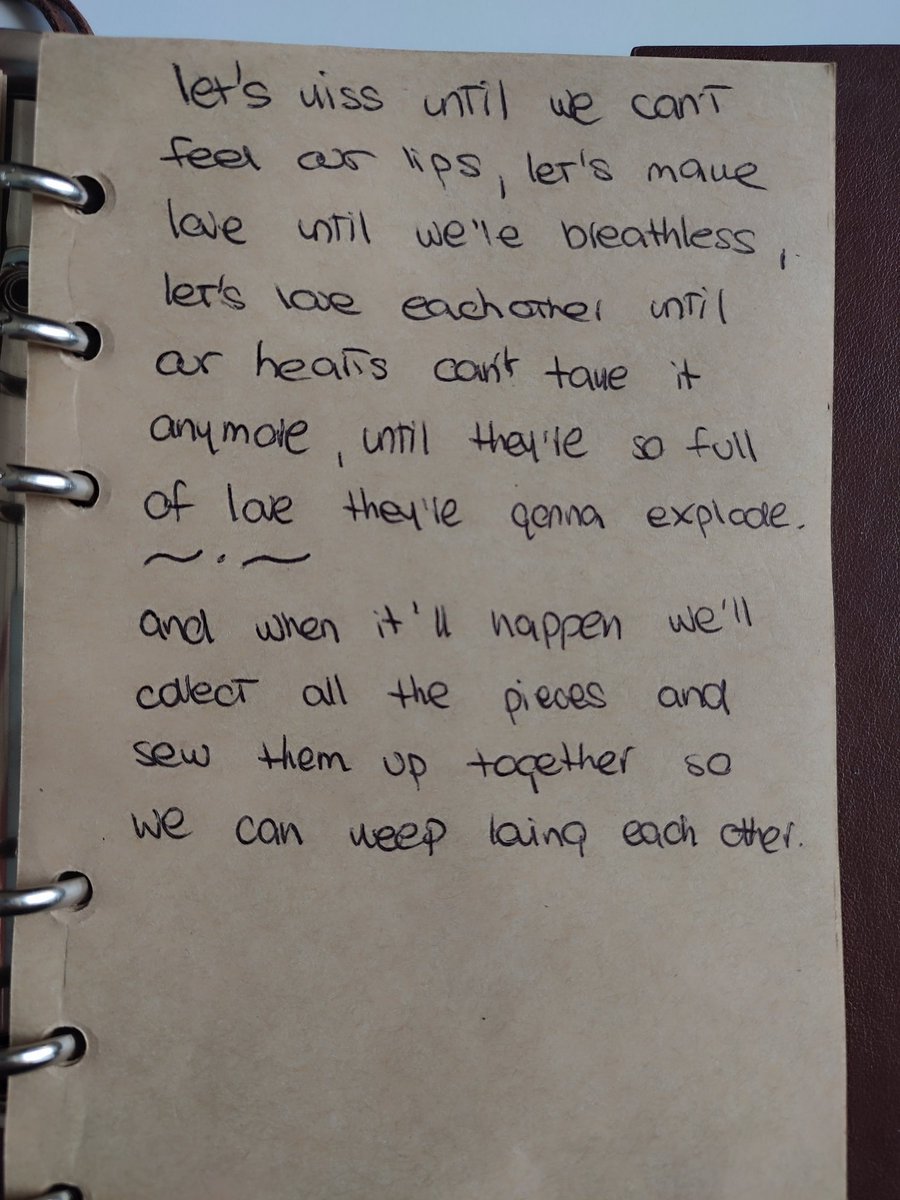 let's kiss until we can't
feel our lips, let's make
love until we're breathless,
let's love eachother until
our hearts can't take it
anymore, until they're so full
of love they're gonna explode.
~ . ~
and when it'll happen we'll
collect all the pieces and
sew them up together so
we can keep loving each other.